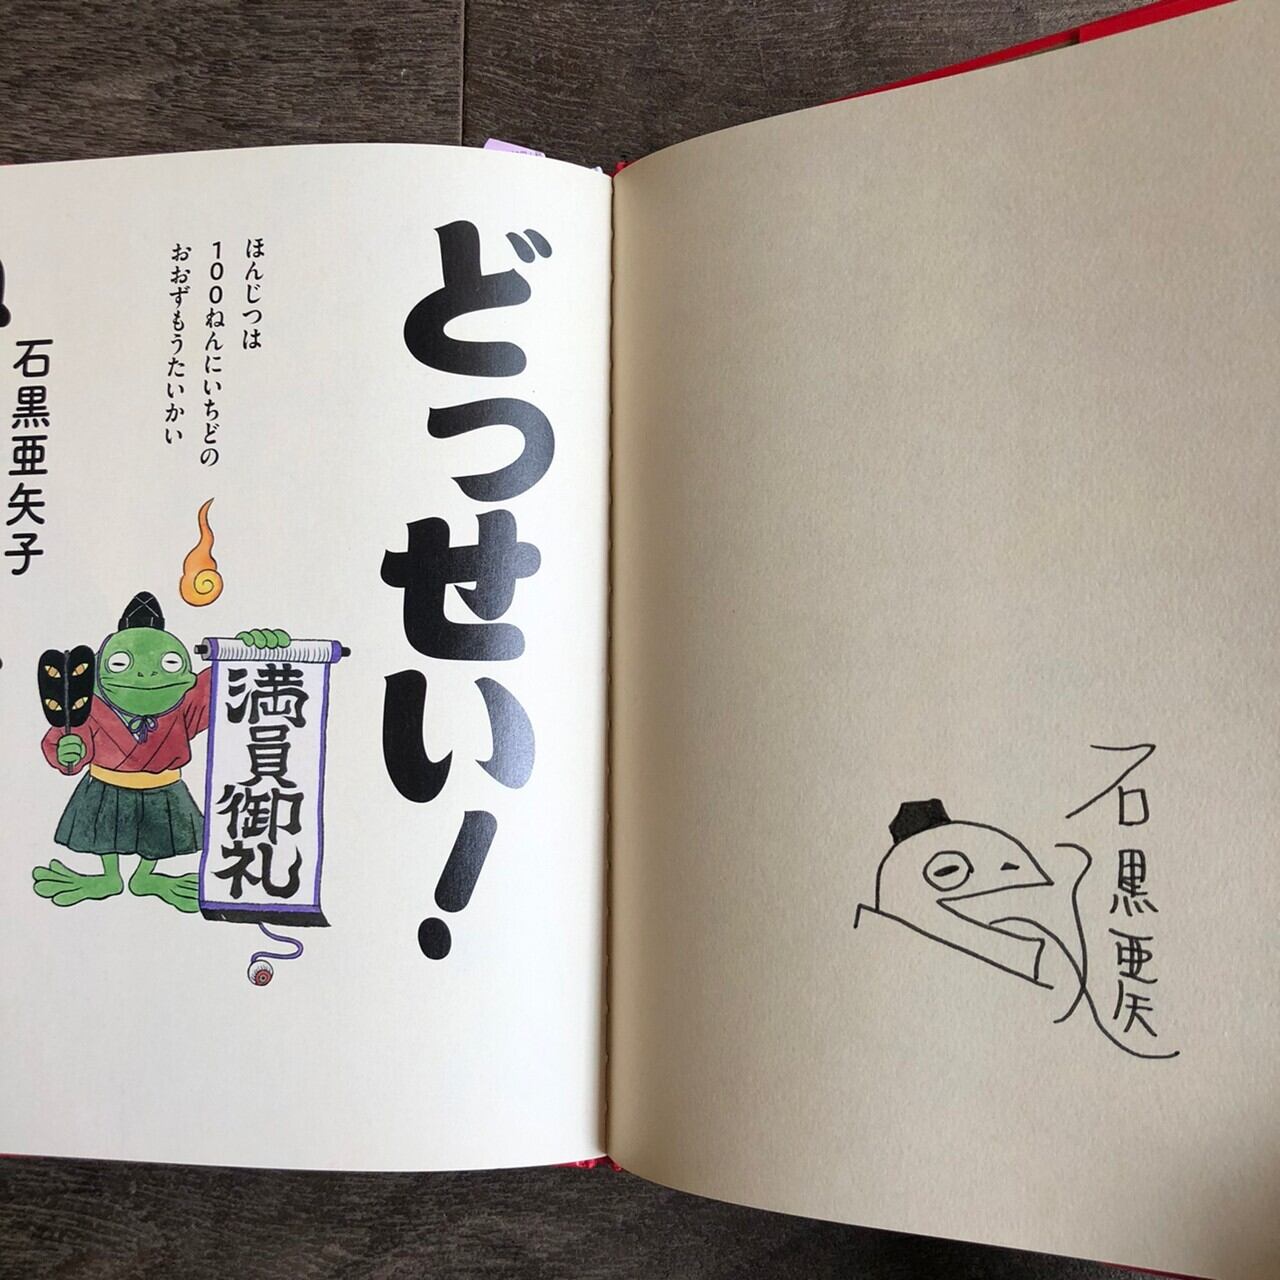 石黒亜矢
どっせい!
ほんじつは
100ねんにいちどの
おおずもうたいかい
満員御礼
石黒亜矢子